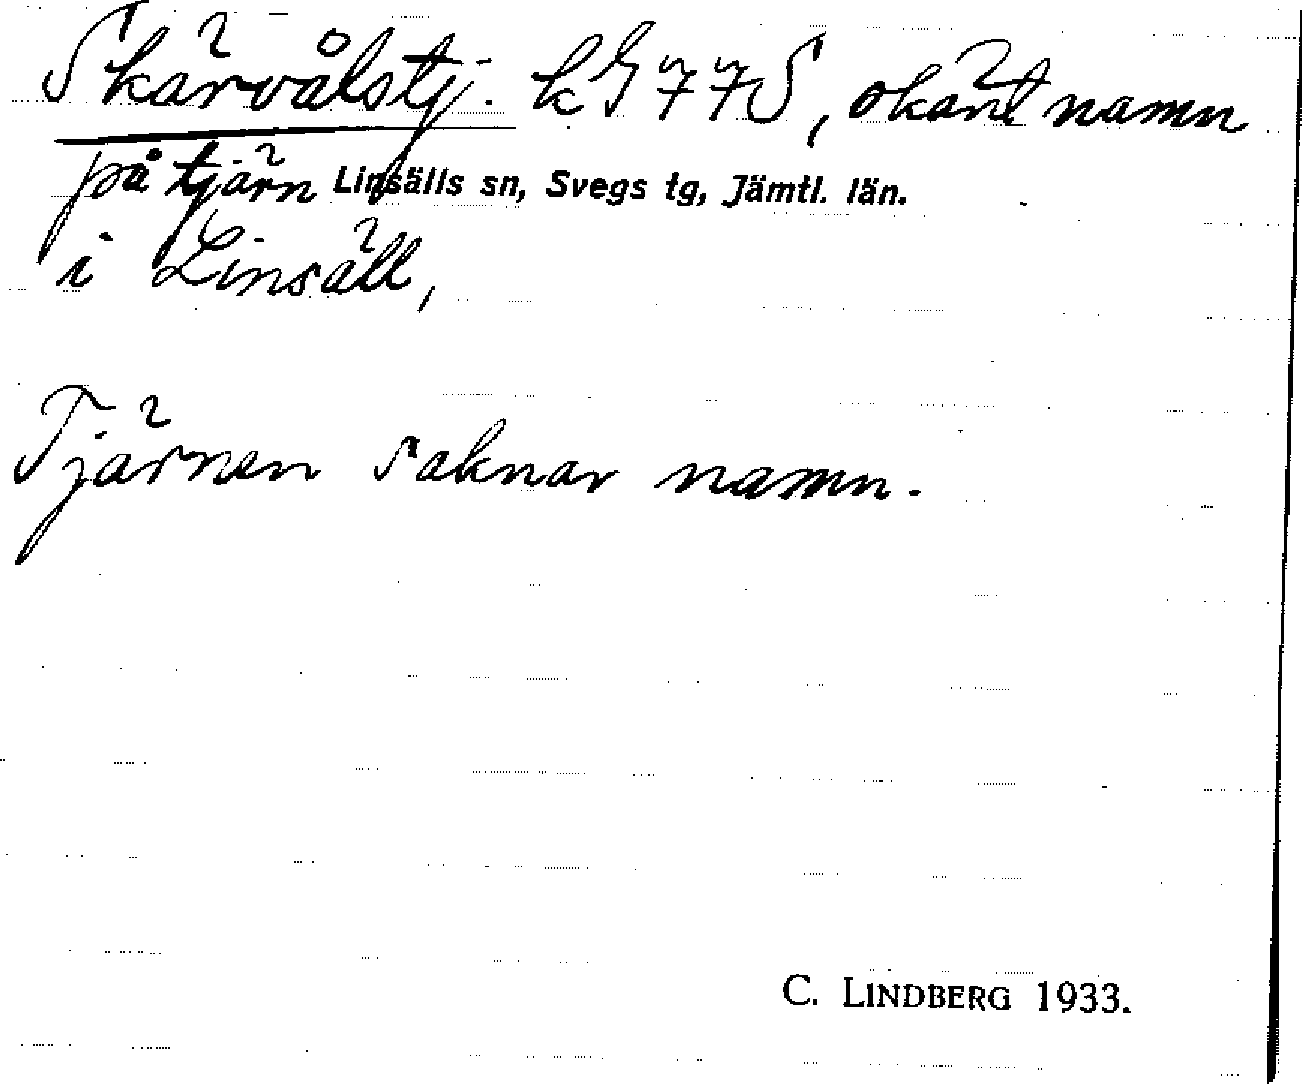 Skärvålstj. k G77S, okänt namn
på tjärn Linsälls sn, Svegs tg, Jämtl. län.
i Linsäll,
Tjärnen saknar namn.
C. LINDBERG 1933.